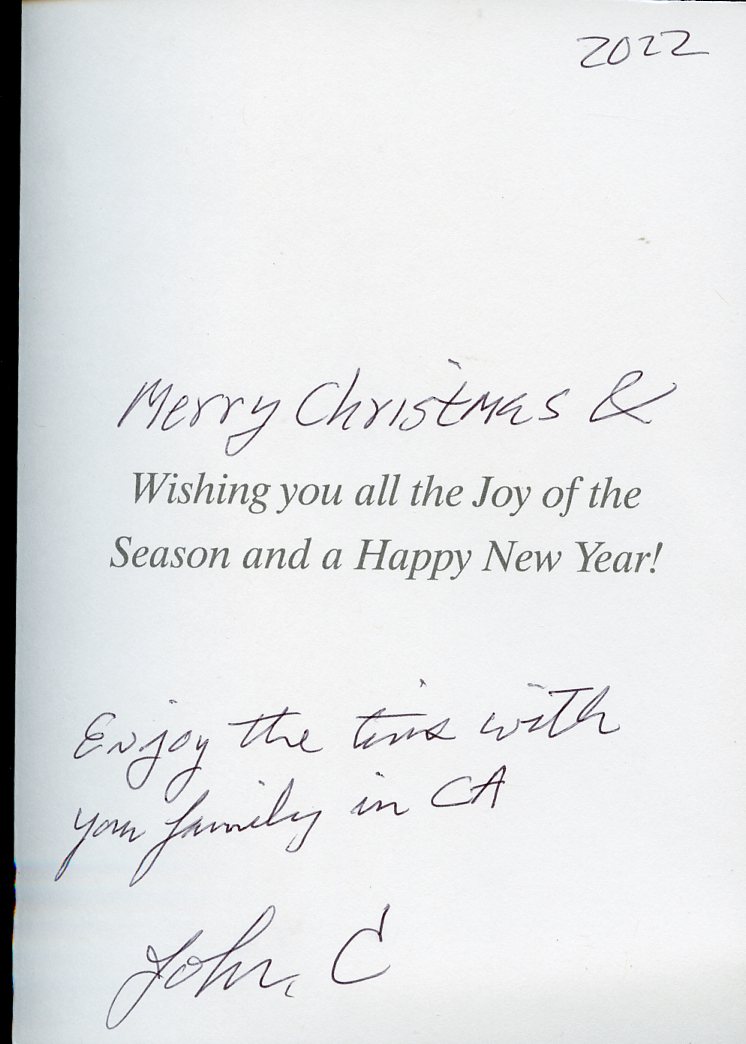 2022
Merry Christmas &
Wishing you all the Joy of the
Season and a Happy New Year!
Enjoy the time with
your family in CA
John, C